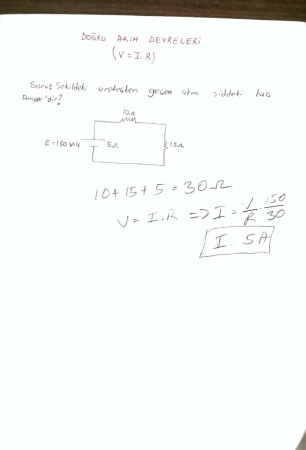 DOĞRU AKIM DEVRELERİ
(V = I.R)
Soru: Şekildeki üreteçten geçen akım şiddeti kaç
Amper'dir?
10Ω
E=150 Volt
5Ω
15Ω
10+15+5=30Ω
V= I.R => I = V/R 150/30
I. 5A